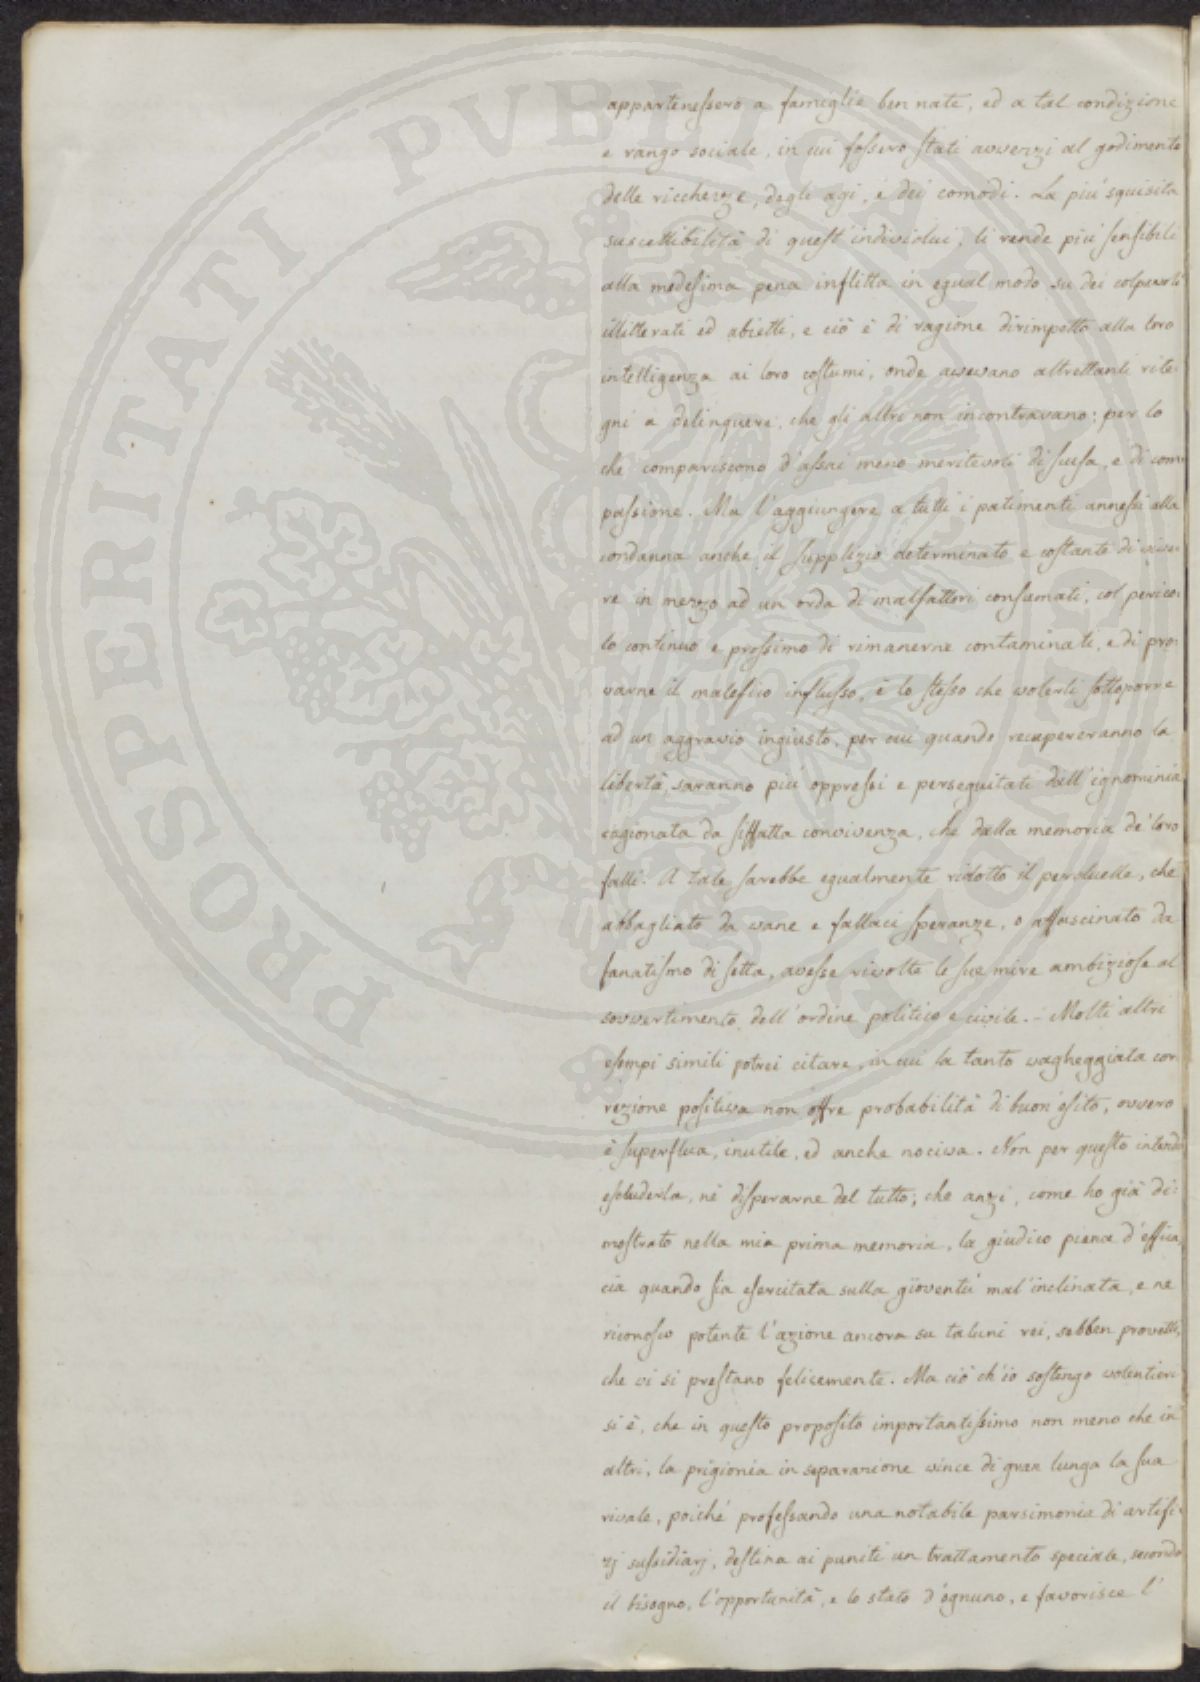 PROSPERITATI PVBLICAE AVGENDAE
appartenessero a famiglie ben nate, ed a tal condizione
e rango sociale, in cui fossero stati avvezzi al godimento
delle ricchezze, degli agi, e dei comodi. La piu' squisita
suscettibilità di quest'individui, li rende piu' sensibili
alla medesima pena inflitta in egual modo su dei colpevoli
illitterati ed abietti, e ciò è di ragione dirimpetto alla loro
intelligenza ai loro costumi, onde avevano altrettanti rite=
gni a delinquere, che gli altri non incontravano; per lo
che compariscono d'assai meno meritevoli di scusa, e di com=
passione. Ma l'aggiungere a tutti i patimenti annessi alla
condanna anche il supplizio determinato e costante di vive=
re in mezzo ad un orda di malfattori consumati, col perico=
lo continuo e prossimo di rimanerne contaminati, e di pro=
varne il malefico influsso, è lo stesso che volerli sottoporre
ad un aggravio ingiusto, per cui quando recupereranno la
libertà, saranno piu' oppressi e perseguitati dall'ignominia
cagionata da siffatta convivenza, che dalla memoria de' loro
falli. A tale sarebbe egualmente ridotto il perduelle, che
abbagliato da vane e fallaci speranze, o affascinato da
fanatismo di setta, avesse rivolte le sue mire ambiziose al
sovvertimento dell'ordine politico e civile. - Molti altri
esempi simili potrei citare, in cui la tanto vagheggiata cor
rezione positiva non offre probabilità di buon'esito, ovvero
è superflua, inutile, ed anche nociva. Non per questo intendo
escluderla, nè disperarne del tutto; che anzi, come ho già di=
mostrato nella mia prima memoria, la giudico piena d'effica
cia quando sia esercitata sulla gioventù mal'inclinata, e ne
riconosco potente l'azione ancora su taluni rei, sebben provetti,
che vi si prestano felicemente. Ma ciò ch'io sostengo volentieri
si è, che in questo proposito importantissimo non meno che in
altri, la prigionia in separazione vince di gran lunga la sua
rivale, poiché professando una notabile parsimonia di artifi=
zj sussidiarj, destina ai puniti un trattamento speciale, secondo
il bisogno, l'opportunità, e lo stato d'ognuno, e favorisce l'